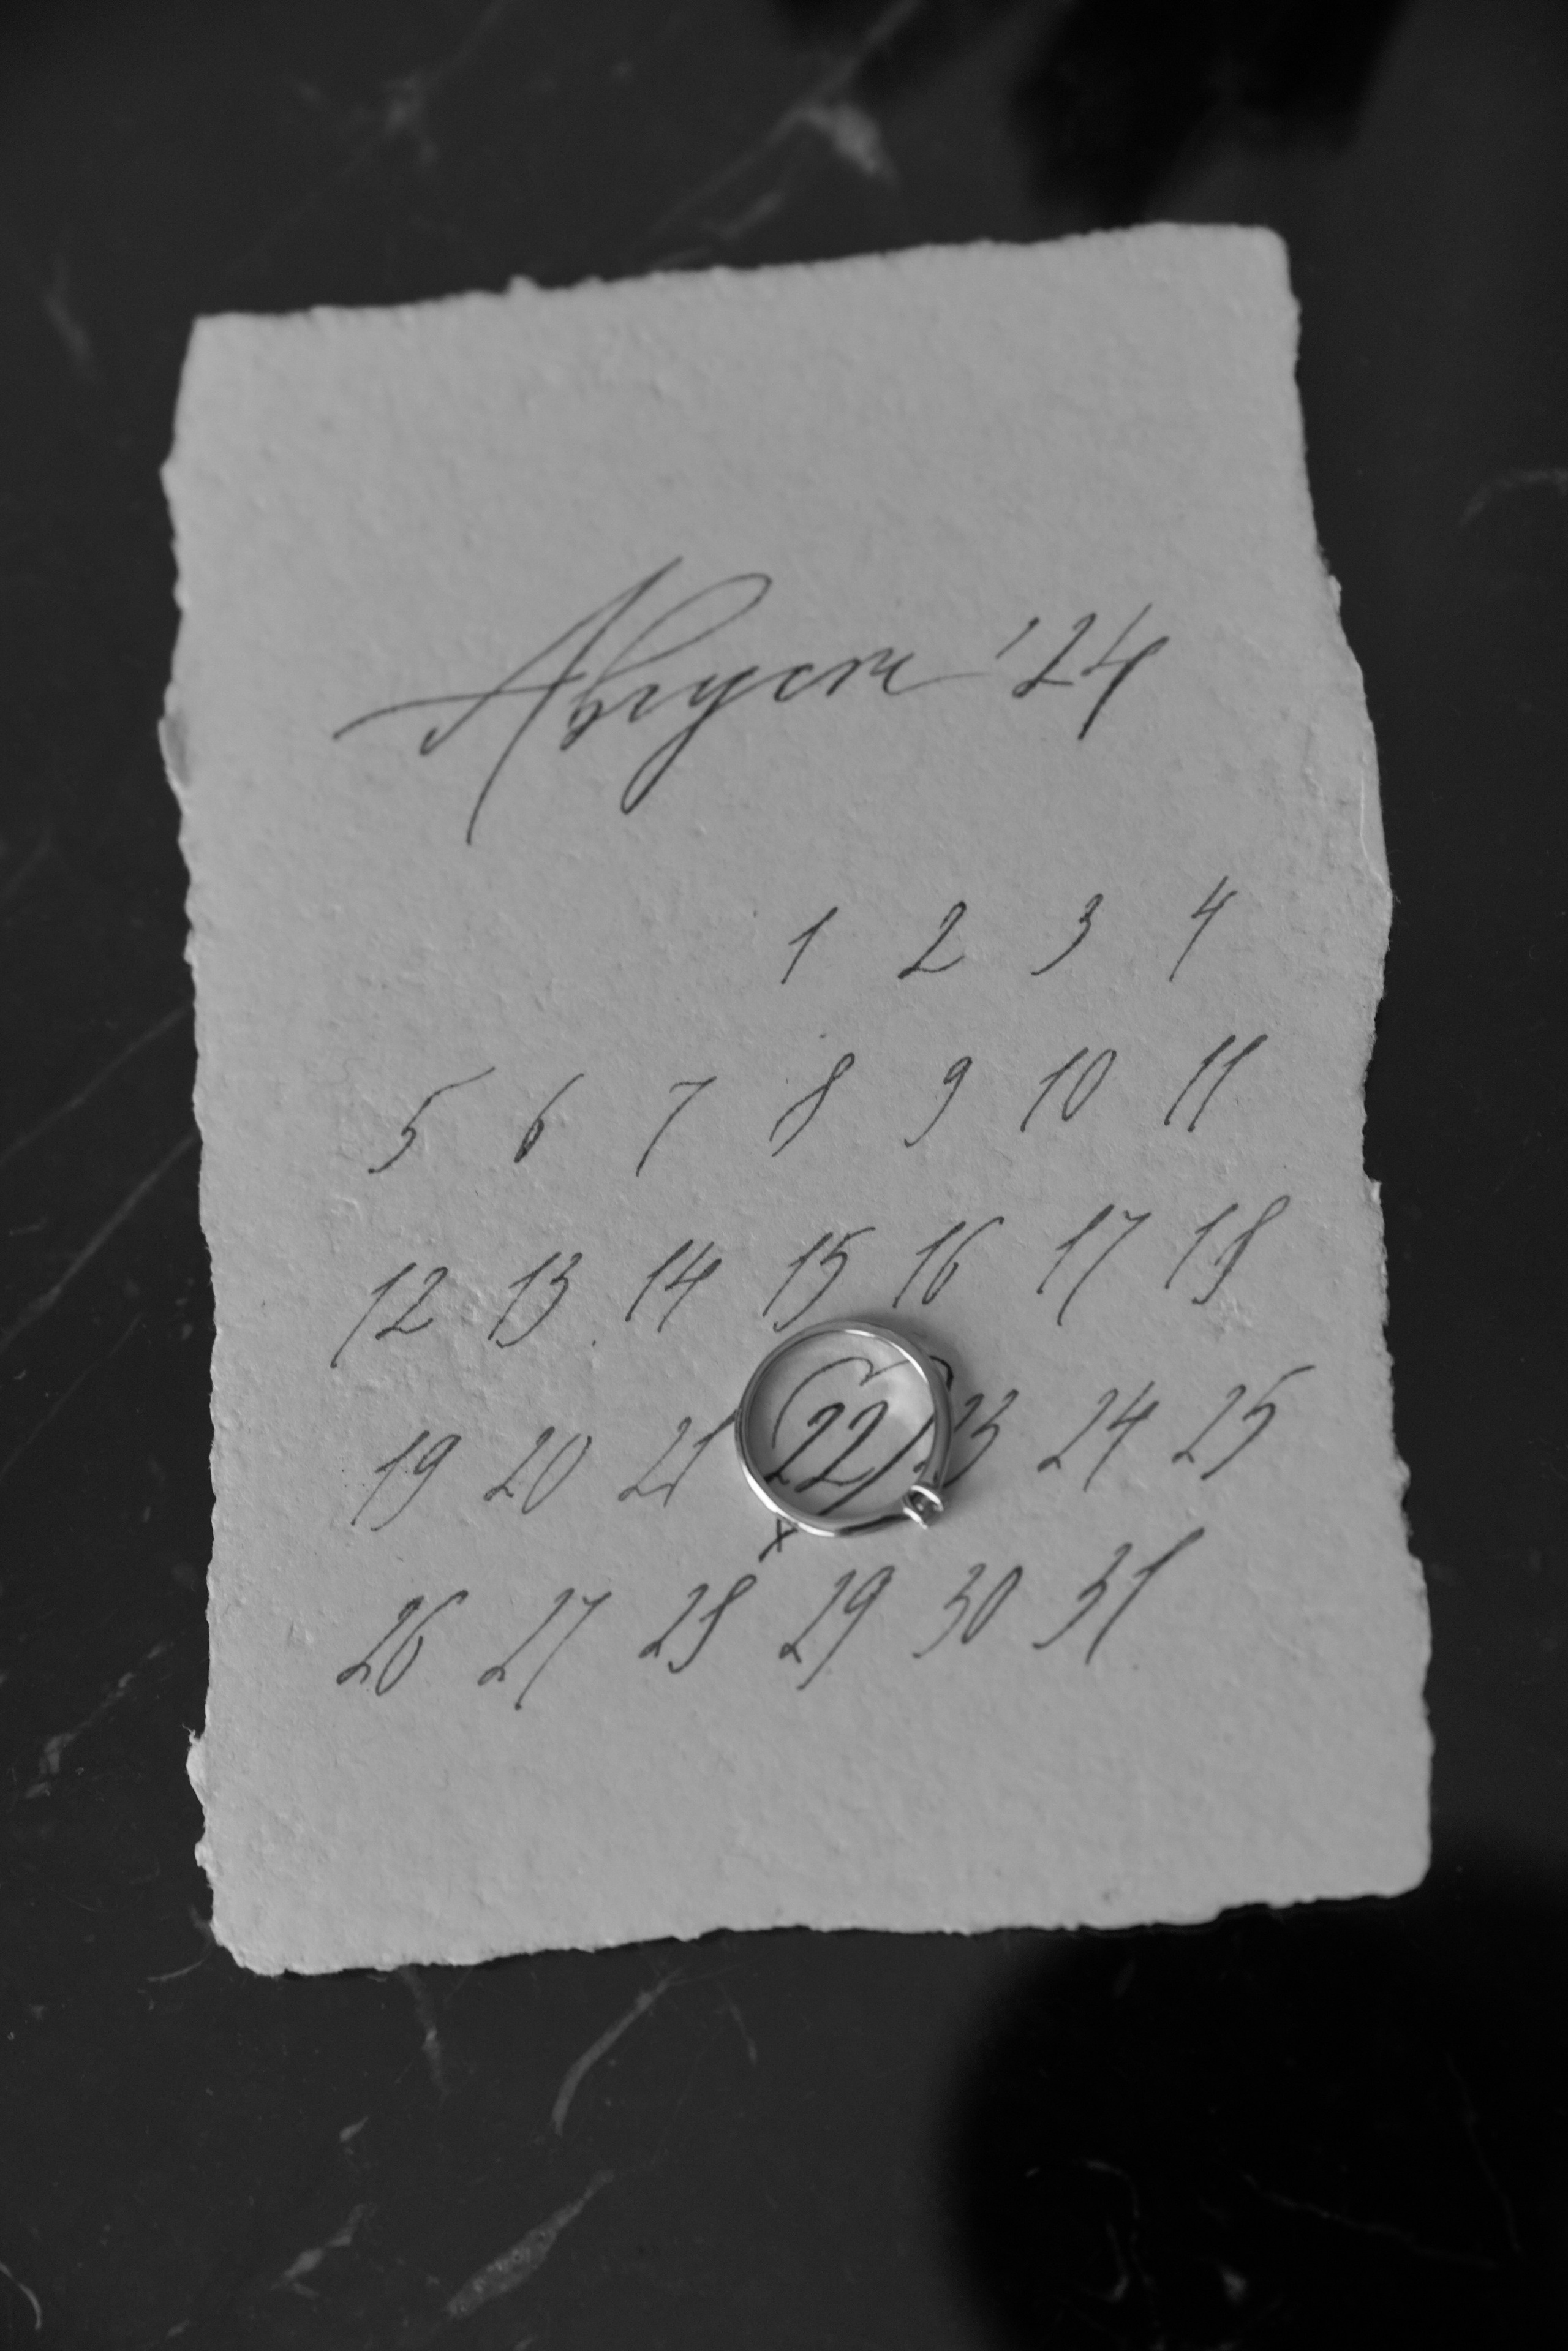 Август '24
1 2 3 4
5 6 7 8 9 10 11
12 13 14 15 16 17 18
19 20 21 22 23 24 25
26 27 28 29 30 31